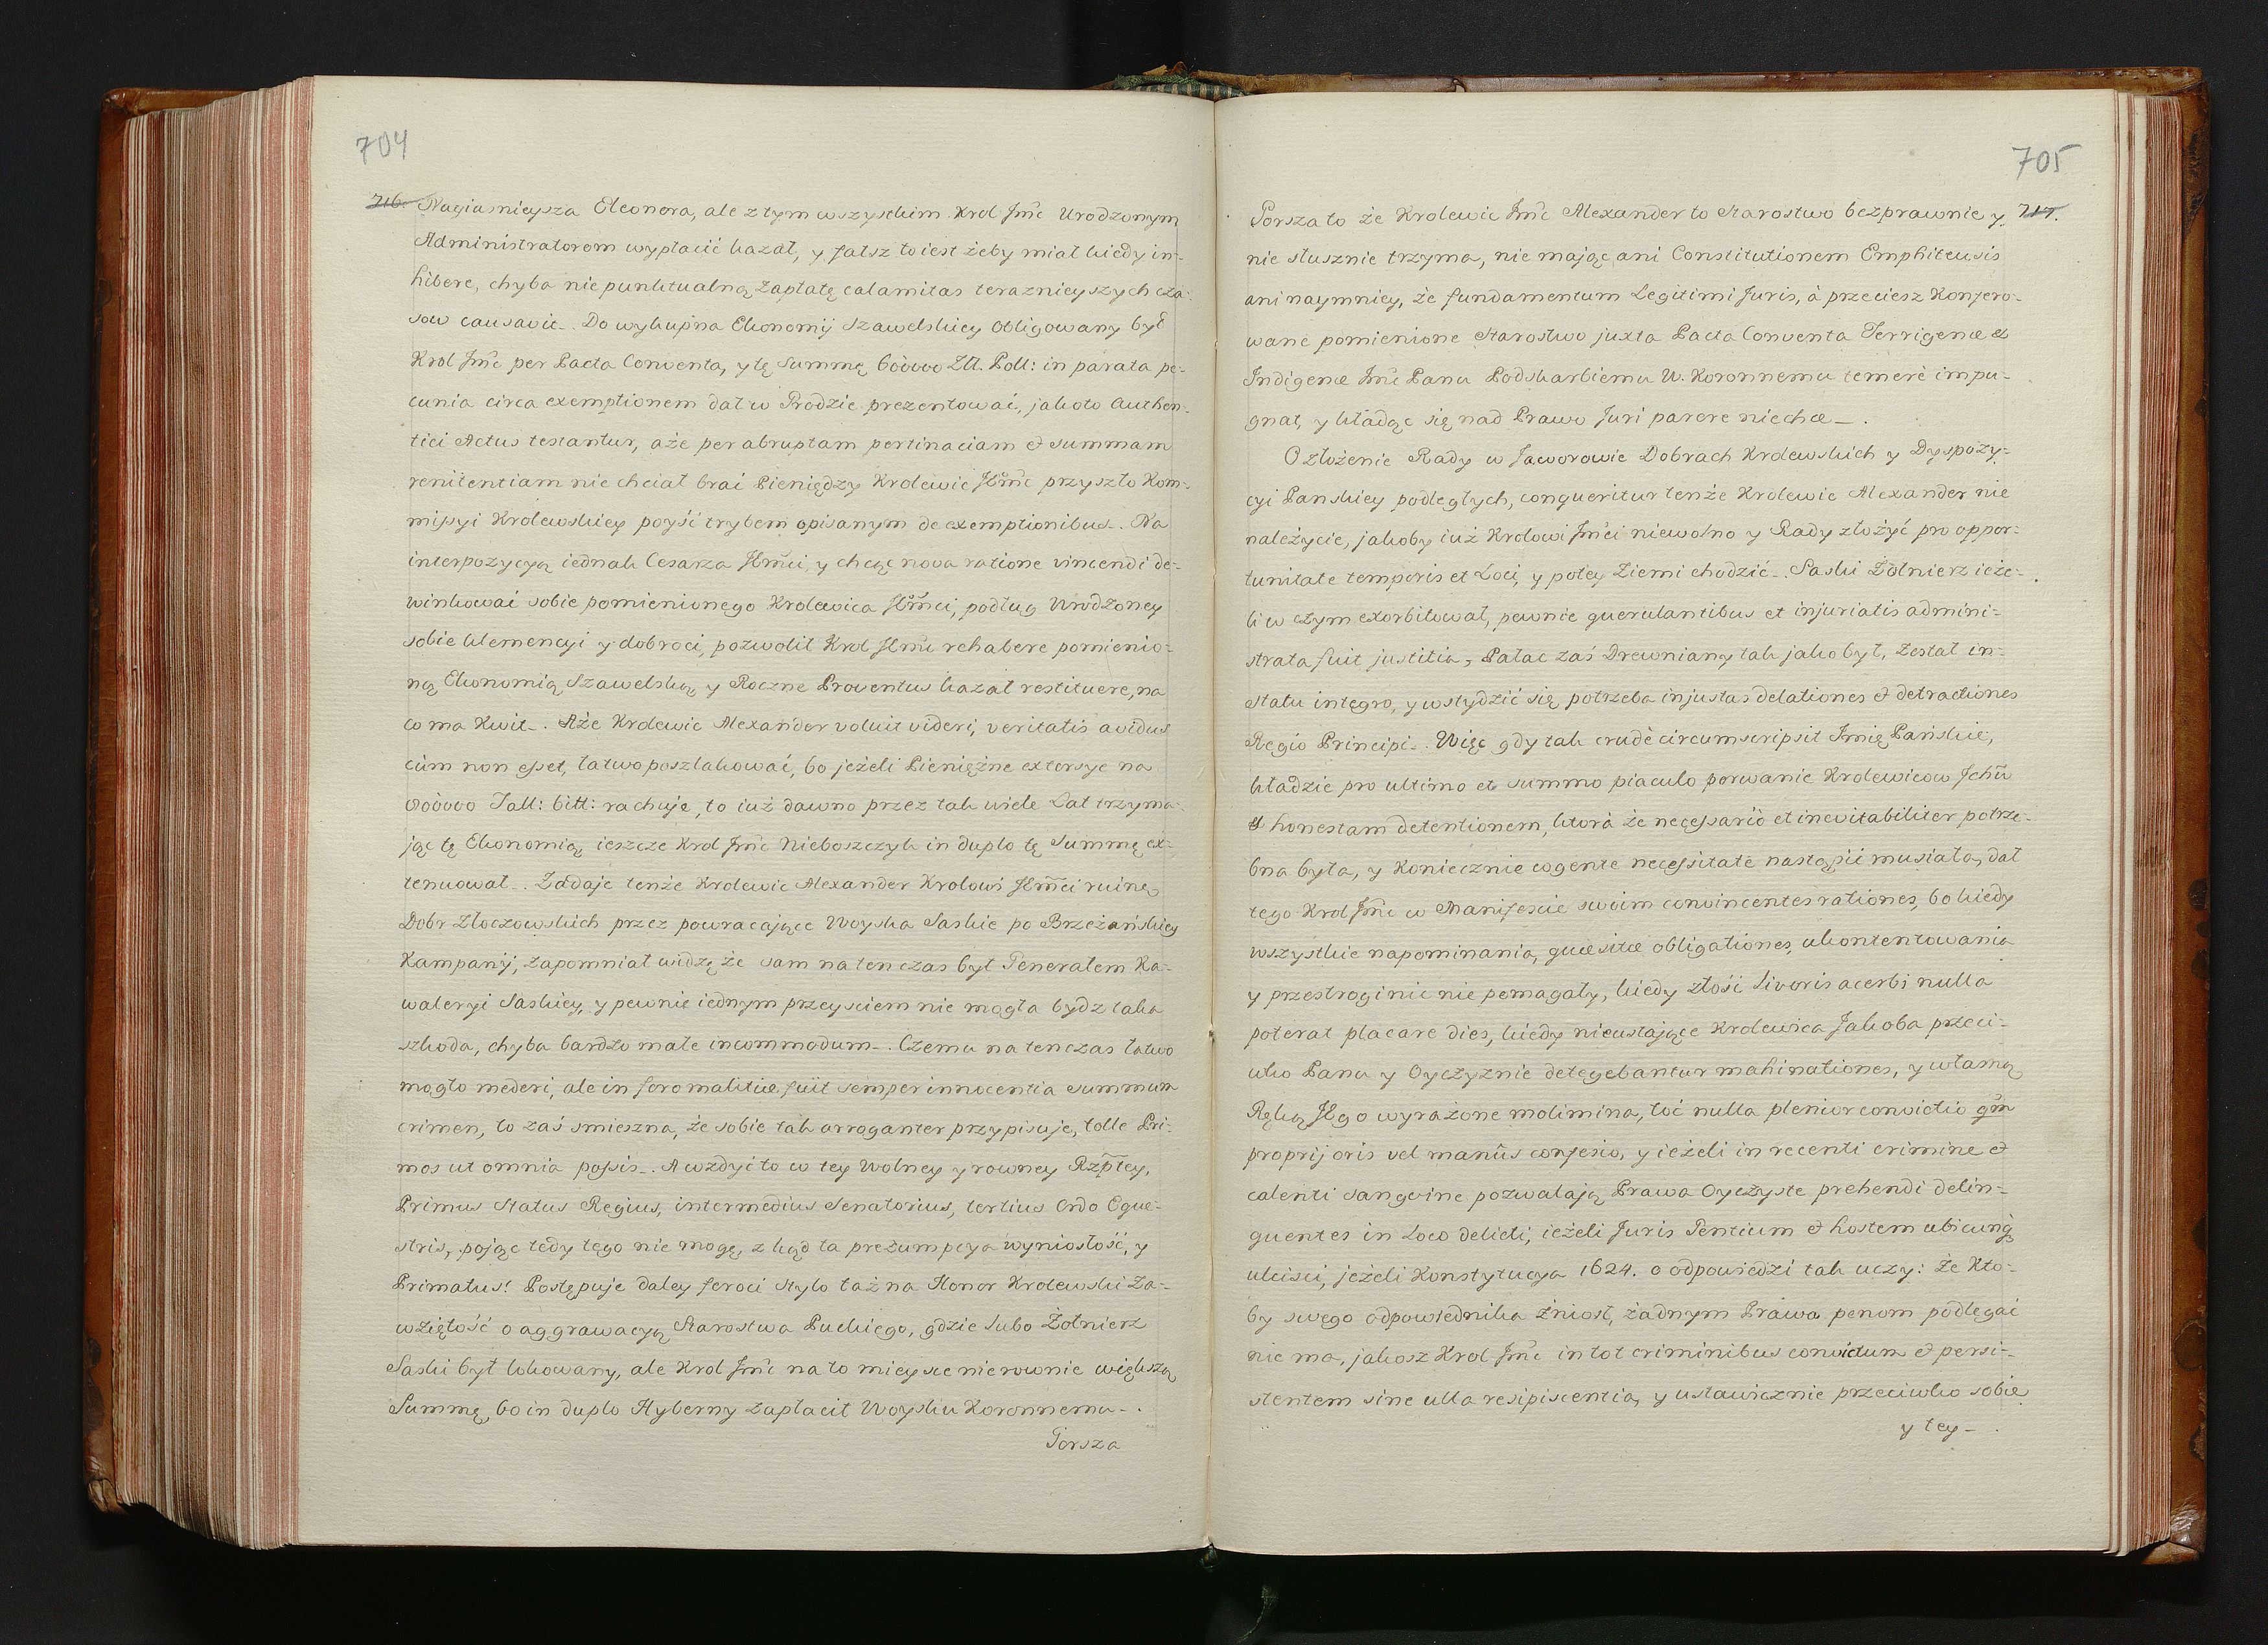 704
716. Nayiasnieysza Eleonora, ale z tym wszystkim Krol Jmc Urodzonym
Administratorom wypłacić kazał, y fałsz to iest żeby miał kiedy in-
hibere, chyba niepunktualną zapłatę calamitas teraznieyszych cza-
sow causavit. Do wykupna Ekonomij Szawelskiey obligowany był
Krol Jmc per Pacta Conventa, y tę Summę 600000 Zll. Poll: in parata pe-
cunia circa exemptionem dał w Grodzie prezentować, jako to Authen-
tici Actus testantur, a że per abruptam pertinaciam et summam
renitentiam nie chciał brać Pieniędzy Krolewic JKmc przyszło Kom-
missyi Krolewskiey poyść trybem opisanym de exemptionibus. Na
interpozycyą iednak Cesarza JKmci, y chcąc nova ratione vincendi de-
winkować sobie pomienionego Krolewica JKmci, podług Urodzoney
sobie klemencyi y dobroci, pozwolił Krol JKmc rehabere pomienio-
ną Ekonomią Szawelską y Roczne Proventus kazał restituere, na
co ma Kwit. Aże Krolewic Alexander voluit videri, veritatis avidus
cùm non esset, łatwo poszlakować, bo jeżeli Pieniężne extorsye na
800000 Tall: bitt: rachuje, to iuż dawno przez tak wiele Lat trzyma-
jąc tę Ekonomią ieszcze Krol Jmc Nieboszczyk in duplo tę Summę ex-
tenuował. Zadaje tenże Krolewic Alexander Krolowi JKmci ruinę
Dobr Złoczowskich przez powracające Woyska Saskie po Brzeżańskiey
Kampanij, zapomniał widzę że sam na ten czas był Generałem Ka-
waleryi Saskiey, y pewnie iednym przeysciem nie mogła bydz taka
szkoda, chyba bardzo małe incommodum. Czemu na ten czas łatwo
mogło mederi, ale in foro malitiæ fuit semper innocentia summum
crimen, to zaś smieszna, że sobie tak arroganter przypisuje, tolle Pri-
mos ut omnia possis. A wzdyć to w tey Wolney y rowney Rzptey,
Primus Status Regius, intermedius Senatorius, tertius Ordo Eque-
stris, pojąc tedy tego nie mogę, z kąd ta prezumpcya wyniosłość, y
Primatus! Postępuje daley feroci stylo taż na Honor Krolewski Za-
wziętość o aggrawacyą Starostwa Puckiego, gdzie lubo Żołnierz
Saski był lokowany, ale Krol Jmc na to mieysce nierownie większą
Summę, bo in duplo Hyberny zapłacił Woysku Koronnemu.
Gorsza
705
Gorsza to że Krolewic Jmc Alexander to Starostwo bezprawnie y 717.
nie słusznie trzyma, nie mając ani Constitutionem Emphiteusis
ani naymniey, że fundamentum Legitimi Juris, à przeciesz Konfero-
wane pomienione Starostwo juxta Pacta Conventa Terrigenæ et
Indigenæ Jmc Panu Podskarbiemu W. Koronnemu temerè impu-
gnat, y kładąc się nad Prawo Juri parere niechce.
O złożenie Rady w Jaworowie Dobrach Krolewskich y Dyspozy-
cyi Panskiey podległych, conqueritur tenże Krolewic Alexander nie
należycie, jakoby iuż Krolowi Jmci niewolno y Rady złożyć pro oppor-
tunitate temporis et Loci, y po tey Ziemi chodzić. Saski Żołnierz ieże-
li w czym exorbitował, pewnie querulantibus et injuriatis admini-
strata fuit justitia, Pałac zaś Drewniany tak jako był, został in
statu integro, y wstydzić się potrzeba injustas delationes et detractiones
Regio Principi. Więc gdy tak crudè circumscripsit Imię Pańskie,
kładzie pro ultimo et summo piaculo porwanie Krolewicow Jchm
et honestam detentionem, ktora że necessariò et inevitabiliter potrze-
bna była, y koniecznie cogente necessitate nastąpić musiała, dał
tego Krol Jmc w Manifescie swoim convincentes rationes, bo kiedy
wszystkie napominania, quæsitæ obligationes, ukontentowania
y przestrogi nic nie pomagały, kiedy złość livoris acerbi nulla
poterat placare dies, kiedy nieustające Krolewica Jakoba przeci-
wko Panu y Oyczyznie detegebantur machinationes, y własną
Ręką JKgo wyrażone molimina, toć nulla plenior convictio qm
proprij oris vel manûs confesio, y ieżeli in recenti crimine et
calenti sangvine pozwalają Prawa Oyczyste prehendi delin-
quentes in Loco delicti, ieżeli Juris Gentium et hostem ubicunq
ulcisci, jeżeli Konstytucya 1624. o odpowiedzi tak uczy: że kto-
by swego odpowiednika zniosł, żadnym Prawa penom podlegać
nie ma, jakosz Krol Jmc in tot criminibus convictum et persi-
stentem sine ulla resipiscentia, y ustawicznie przeciwko sobie
y tey